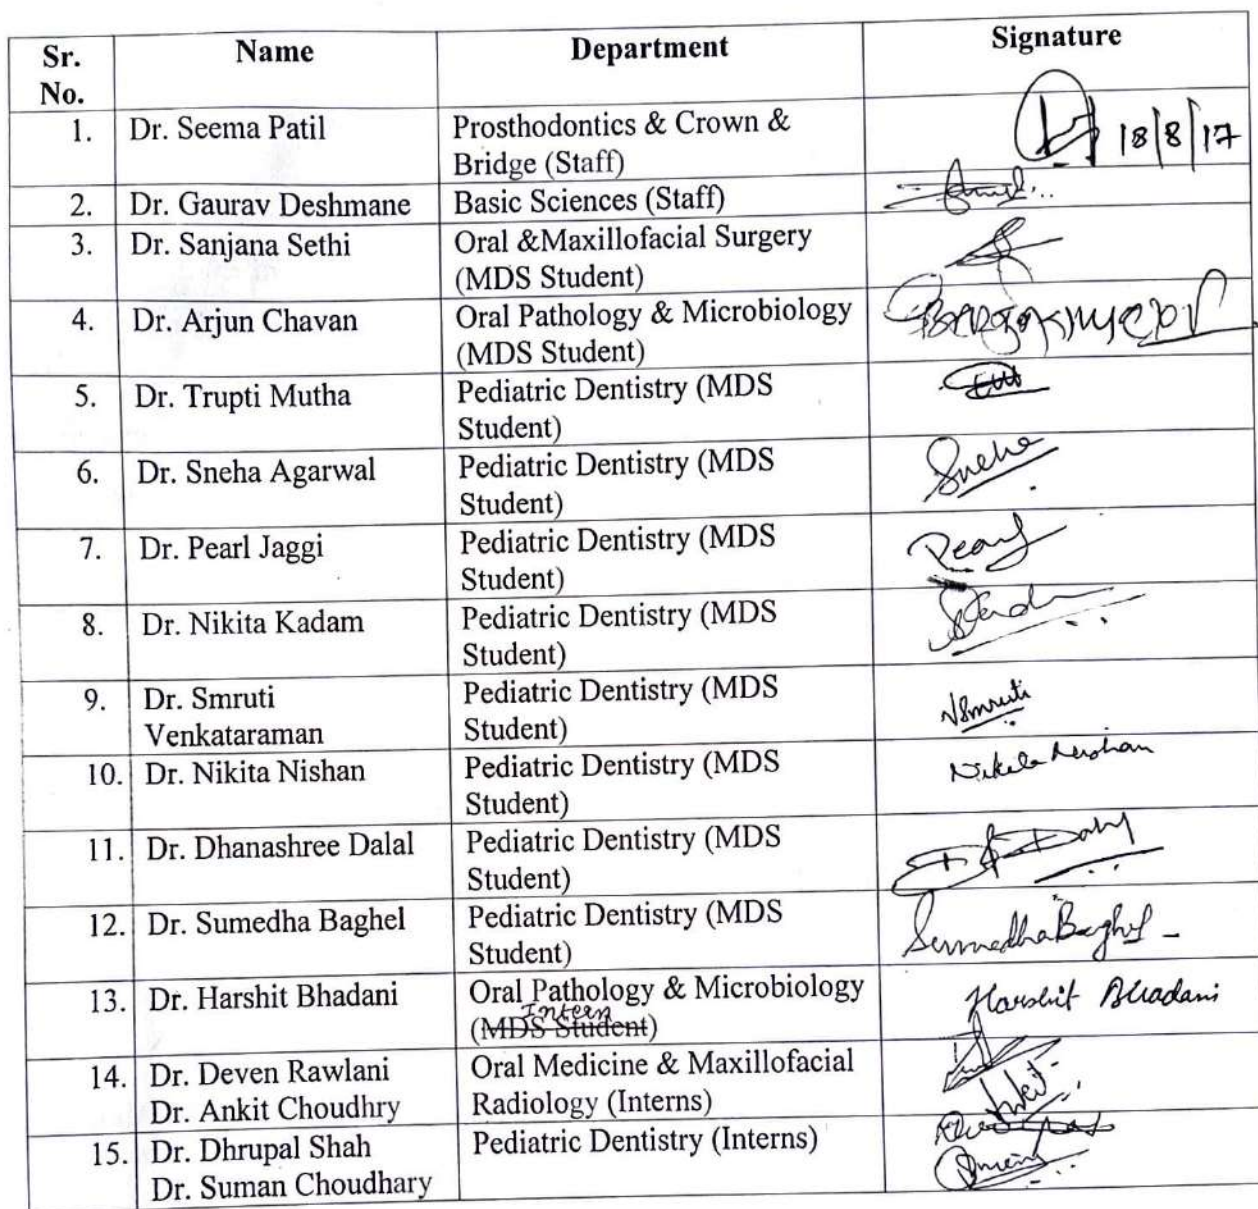 Sr. No. Name Department Signature
1. Dr. Seema Patil Prosthodontics & Crown &
Bridge (Staff)
18/8/17
2. Dr. Gaurav Deshmane Basic Sciences (Staff)
3. Dr. Sanjana Sethi Oral &Maxillofacial Surgery
(MDS Student)
4. Dr. Arjun Chavan Oral Pathology & Microbiology
(MDS Student)
5. Dr. Trupti Mutha Pediatric Dentistry (MDS
Student)
6. Dr. Sneha Agarwal Pediatric Dentistry (MDS
Student)
Sneha
7. Dr. Pearl Jaggi Pediatric Dentistry (MDS
Student)
Pearl
8. Dr. Nikita Kadam Pediatric Dentistry (MDS
Student)
9. Dr. Smruti
Venkataraman
Pediatric Dentistry (MDS
Student)
VSmruti
10. Dr. Nikita Nishan Pediatric Dentistry (MDS
Student)
Nikita Nishan
11. Dr. Dhanashree Dalal Pediatric Dentistry (MDS
Student)
12. Dr. Sumedha Baghel Pediatric Dentistry (MDS
Student)
Sumedha Baghel
13. Dr. Harshit Bhadani Oral Pathology & Microbiology
Intern
(MDS Student)
Harshit Bhadani
14. Dr. Deven Rawlani
Dr. Ankit Choudhry
Oral Medicine & Maxillofacial
Radiology (Interns)
Ankit
15. Dr. Dhrupal Shah
Dr. Suman Choudhary
Pediatric Dentistry (Interns)
Suman